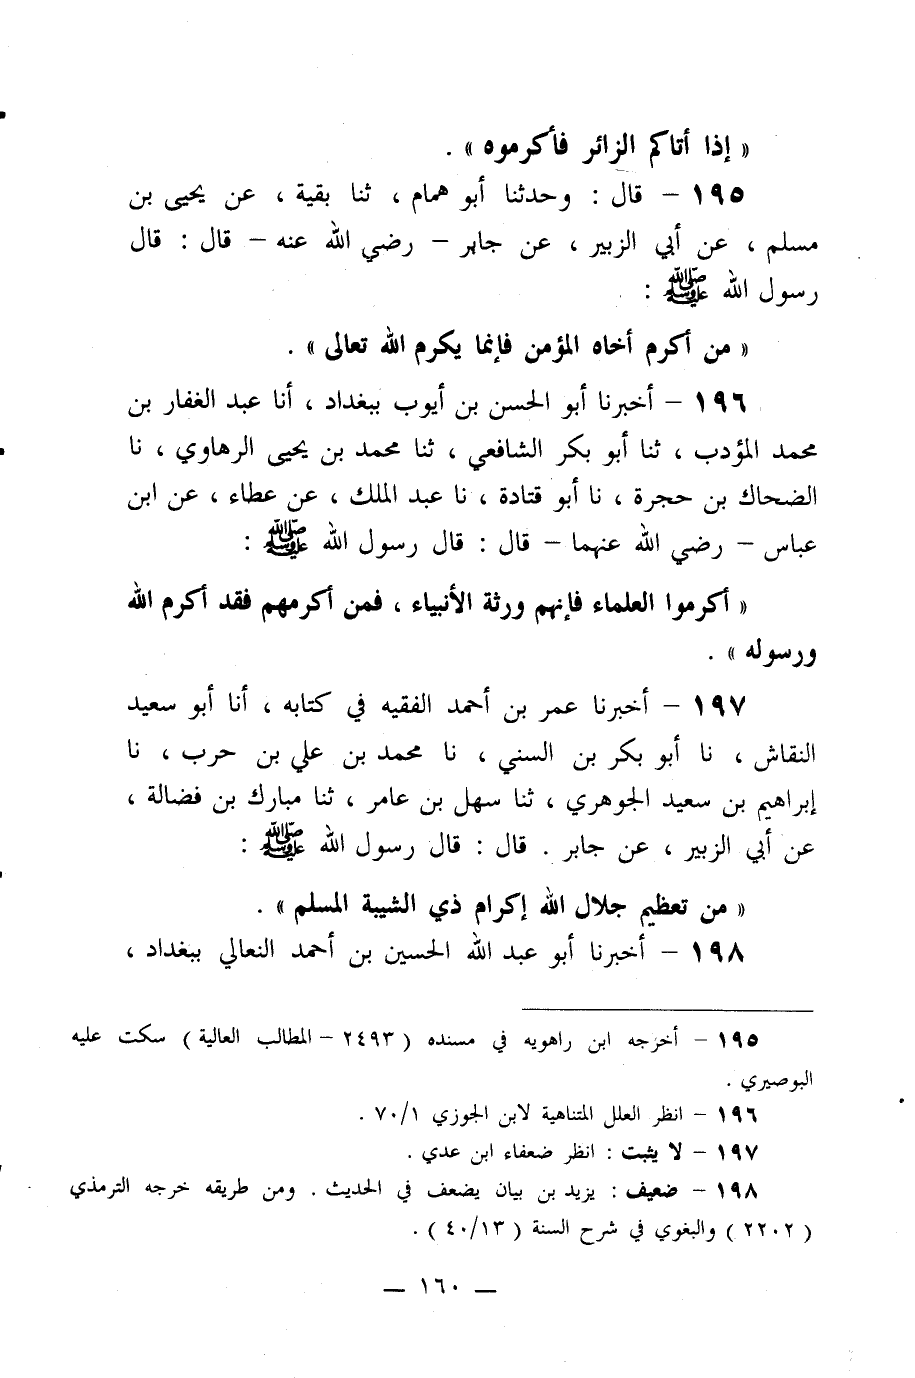 « إذا أتاكم الزائر فأكرموه » .
١٩٥ – قال : وحدثنا أبو همام ، ثنا بقية ، عن يحيى بن
مسلم ، عن أبي الزبير ، عن جابر – رضي الله عنه – قال : قال
رسول الله ﷺ :
« من أكرم أخاه المؤمن فإنما يكرم الله تعالى » .
١٩٦ – أخبرنا أبو الحسن بن أيوب ببغداد ، أنا عبد الغفار بن
محمد المؤدب ، ثنا أبو بكر الشافعي ، ثنا محمد بن يحيى الرهاوي ، نا
الضحاك بن حجرة ، نا أبو قتادة ، نا عبد الملك ، عن عطاء ، عن ابن
عباس – رضي الله عنهما – قال : قال رسول الله ﷺ :
« أكرموا العلماء فإنهم ورثة الأنبياء ، فمن أكرمهم فقد أكرم الله
ورسوله » .
١٩٧ – أخبرنا عمر بن أحمد الفقيه في كتابه ، أنا أبو سعيد
النقاش ، نا أبو بكر بن السني ، نا محمد بن علي بن حرب ، نا
إبراهيم بن سعيد الجوهري ، ثنا سهل بن عامر ، ثنا مبارك بن فضالة ،
عن أبي الزبير ، عن جابر . قال : قال رسول الله ﷺ :
« من تعظيم جلال الله إكرام ذي الشيبة المسلم » .
١٩٨ – أخبرنا أبو عبد الله الحسين بن أحمد النعالي ببغداد ،
١٩٥ – أخرجه ابن راهويه في مسنده ( ٢٤٩٣ – المطالب العالية ) سكت عليه
البوصيري .
١٩٦ – انظر العلل المتناهية لابن الجوزي ٧٠/١ .
١٩٧ – لا يثبت : انظر ضعفاء ابن عدي .
١٩٨ – ضعيف : يزيد بن بيان يضعف في الحديث . ومن طريقه خرجه الترمذي
( ٢٢٠٢ ) والبغوي في شرح السنة ( ٤٠/١٣ ) .
— ١٦٠ —